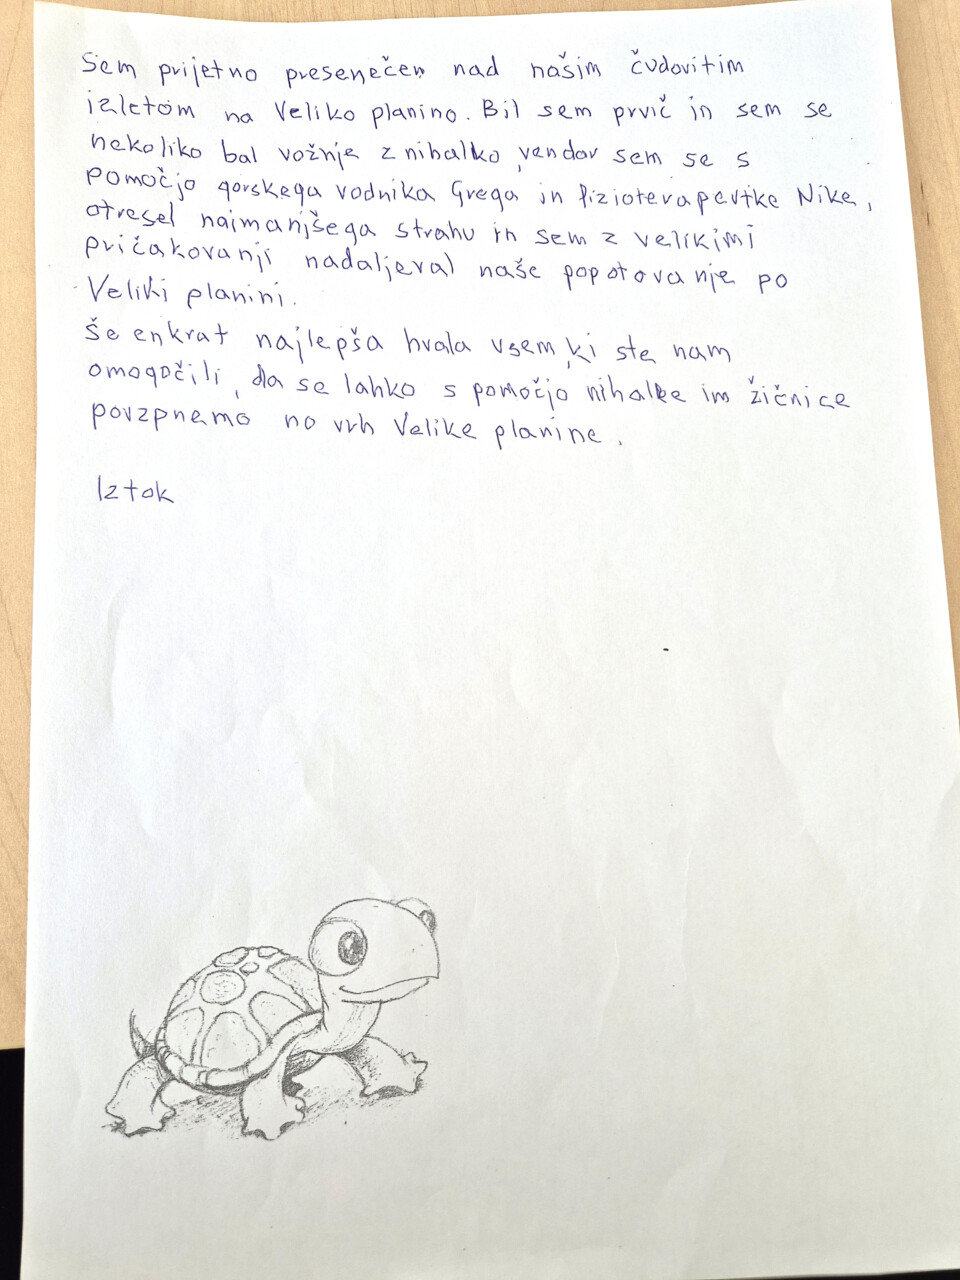 Sem prijetno presenečen nad našim čudovitim
izletom na Veliko planino. Bil sem prvič in sem se
nekoliko bal vožnje z nihalko, vendar sem se s
pomočjo gorskega vodnika Grega in fizioterapevtke Nike,
otresel najmanjšega strahu in sem z velikimi
pričakovanji nadaljeval naše popotovanje po
Veliki planini.
Še enkrat najlepša hvala vsem, ki ste nam
omogočili, da se lahko s pomočjo nihalke im žičnice
povzpnemo no vrh Velike planine.
Iztok